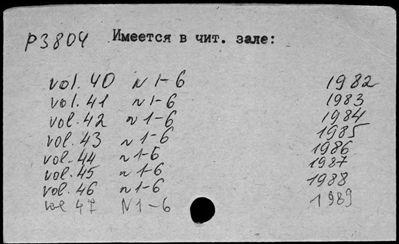 р3804 Имеется в чит. зале:
vol. 40 N 1-6 1982
vol. 41 N 1-6 1983
vol. 42 N 1-6 1984
vol. 43 N 1-6 1985
vol. 44 N 1-6 1986
vol. 45 N 1-6 1987
vol. 46 N 1-6 1988
vol 47 N 1-6 1989